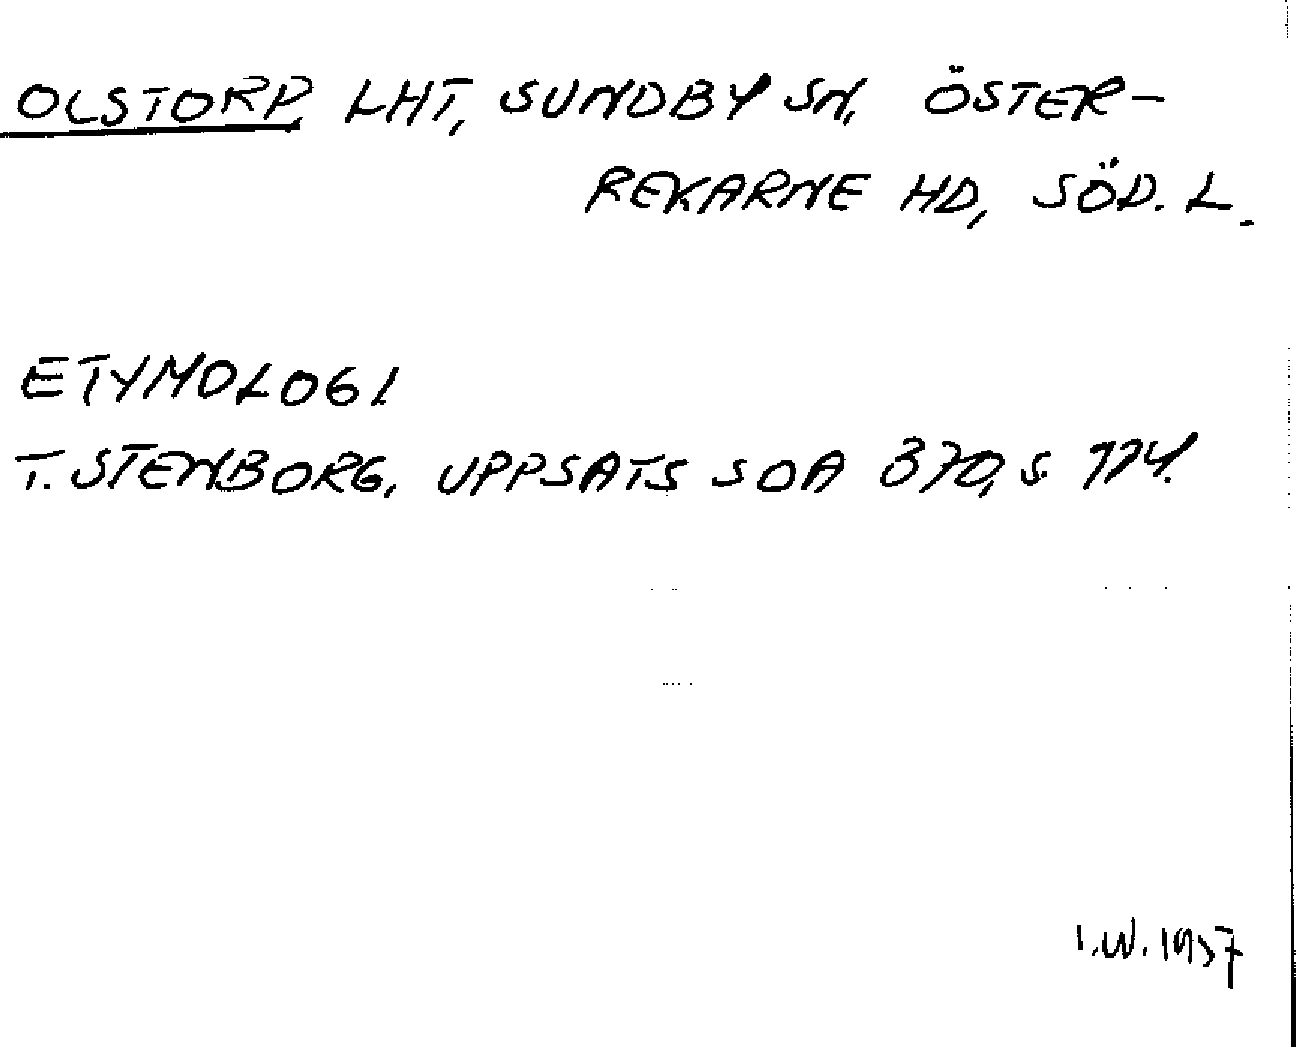 OLSTORP, LHT, SUNDBY SN, ÖSTER-
REKARNE HD, SÖD. L.
ETYMOLOGI
T. STENBORG, UPPSATS SOA 370, S. 174.
I.W. 1957